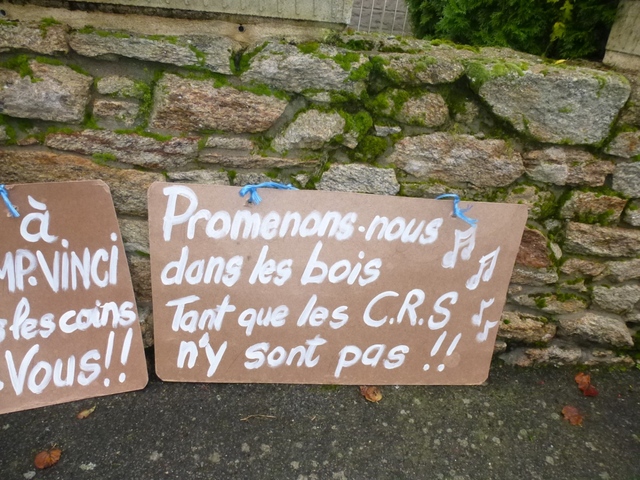 à
MP. VINCI
les coins
Vous!!
Promenons-nous
dans les bois
Tant que les C.R.S
n'y sont pas !!